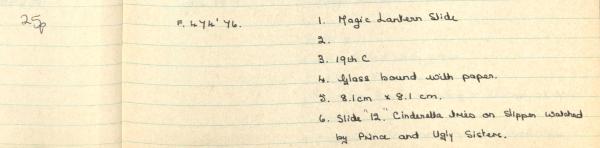 25p
F. 474'76.
1. Magic Lantern Slide
2.
3. 19th C
4. Glass bound with paper.
5. 8.1cm x 8.1 cm.
6. Slide "12." Cinderella tries on slipper watched
by Prince and Ugly Sisters.